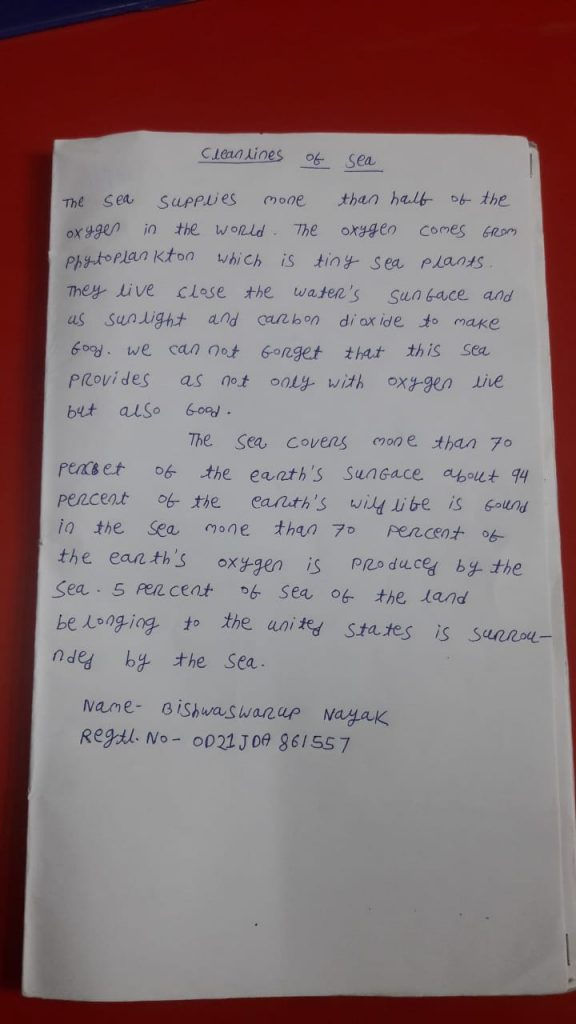 Cleanlines of sea
The sea supplies more than half of the
oxygen in the world. The oxygen comes from
phytoplankton which is tiny sea plants.
They live close the water's surface and
us sunlight and carbon dioxide to make
food. we can not forget that this sea
provides as not only with oxygen live
but also food.
The sea covers more than 70
percet of the earth's surface about 94
percent of the earth's wild life is found
in the sea more than 70 percent of
the earth's oxygen is produced by the
sea. 5 percent of sea of the land
belonging to the united states is surrou-
nded by the sea.
Name- Bishwaswarup Nayak
Regtl. No- OD21JDA861557